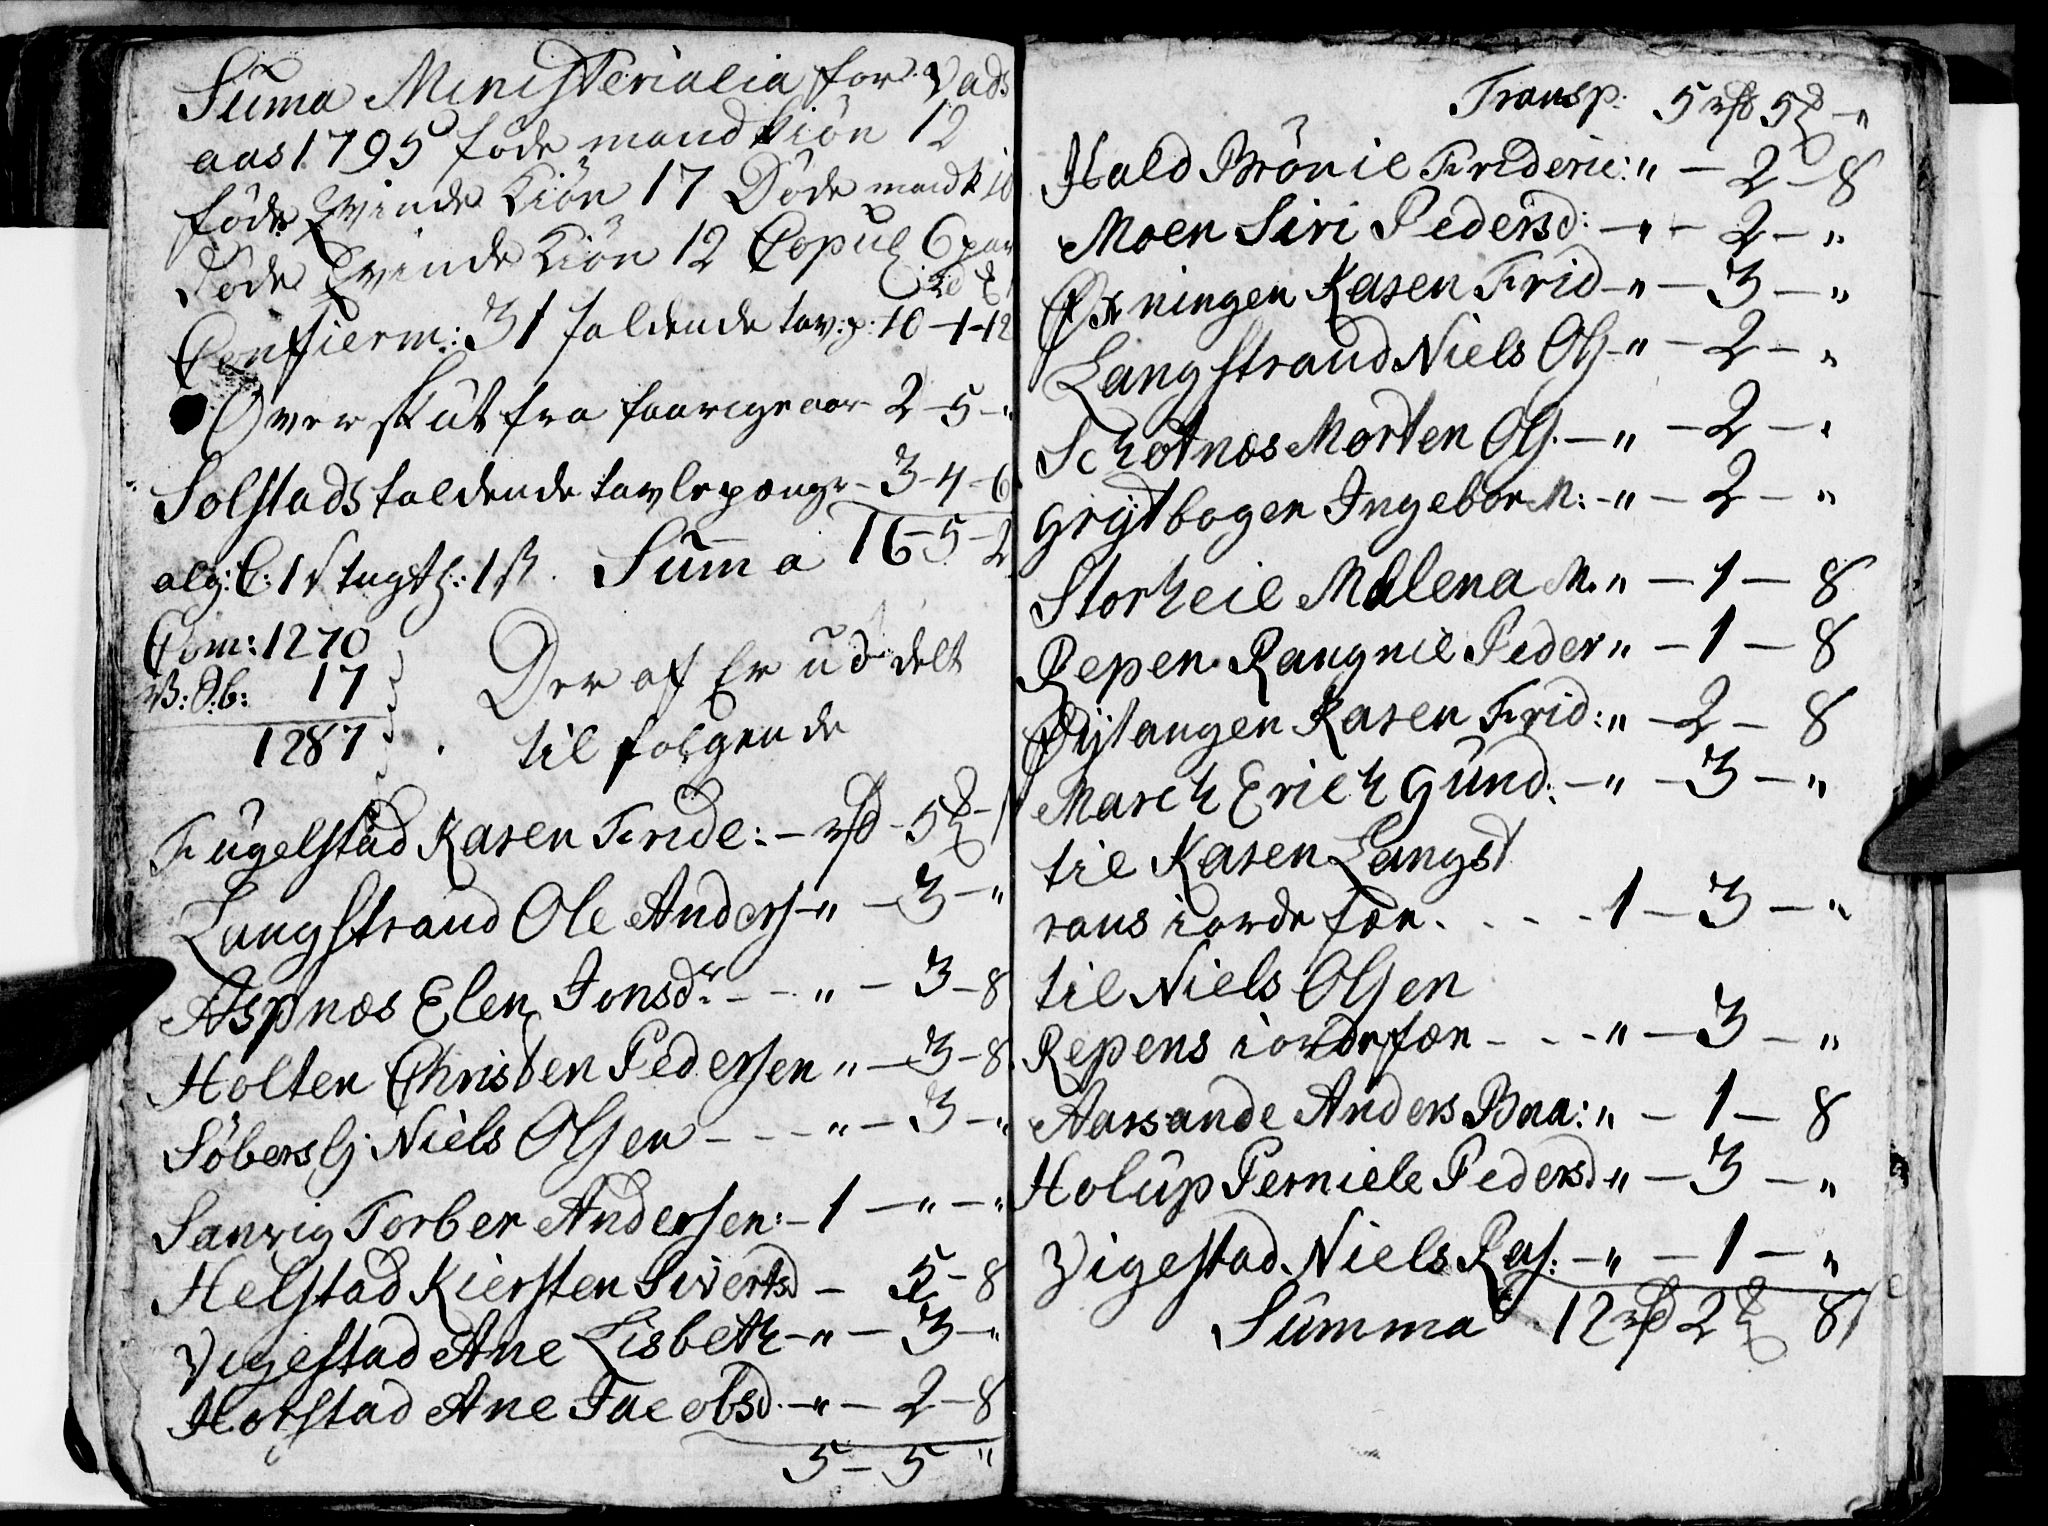 Suma Ministerialia for Vads
aas 1795 føde mandkiøn 12
føde Qvinde Kiøn 17 Døde mandk 10
Døde Qvinde Kiøn 12 Copul 6 par
Confierm: 31 faldende tav:p: 10 - 1 - 12
Overskut fra faarige aar 2 - 5 - "
Solstads faldende tavlepænge - 3 - 4 - 6
Summa 16 - 5 - 2
Com: 1270
17
1287
Der af Er uddelt
til følgende
Fugelstad Karen Fride: - rd - 5
Langstrand Ole Anders - " - 3 - "
Aspnæs Elen Jonsdr - - - " - 3 - 8
Holten Christen Pedersen " - 3 - 8
Søbersli Niels Olsen - - - " - 3 - "
Sanvig Torber Andersen: - 1 - " - "
Helstad Kiersten Sivertsd - 5 - 8
Vigestad Ane Lisbeth - " - 3 - "
Horstad Ane Jacobsd. - " - 2 - 8
5 - 5 "
Transp. 5 rd 5 - "
Hald Brønil Frideric: " - 2 - 8
Moen Siri Pedersd: - " - 2 - "
Øxningen Karen Frid - " - 3 - "
Langstrand Niels Ols - " - 2 - "
Schotnæs Morten Ols. - " - 2 - "
Grytbogen Ingebor M: - " - 2 - "
Storheil Malena M. " - 1 - 8
Repen Rangnil Peder " - 1 - 8
Øytangen Karen Frid: " - 2 - 8
March Erich Gund: - " - 3 - "
til Karen Langst
rans iorde fær. - - - 1 - 3 - "
til Niels Olsen
Repens iordefær - - - " - 3 - "
Aarsande Anders Bna: " - 1 - 8
Holup Perniele Pedersd " - 3 - "
Vigestad Niels Ras: - " - 1 - "
Summa 12 rd 2 8